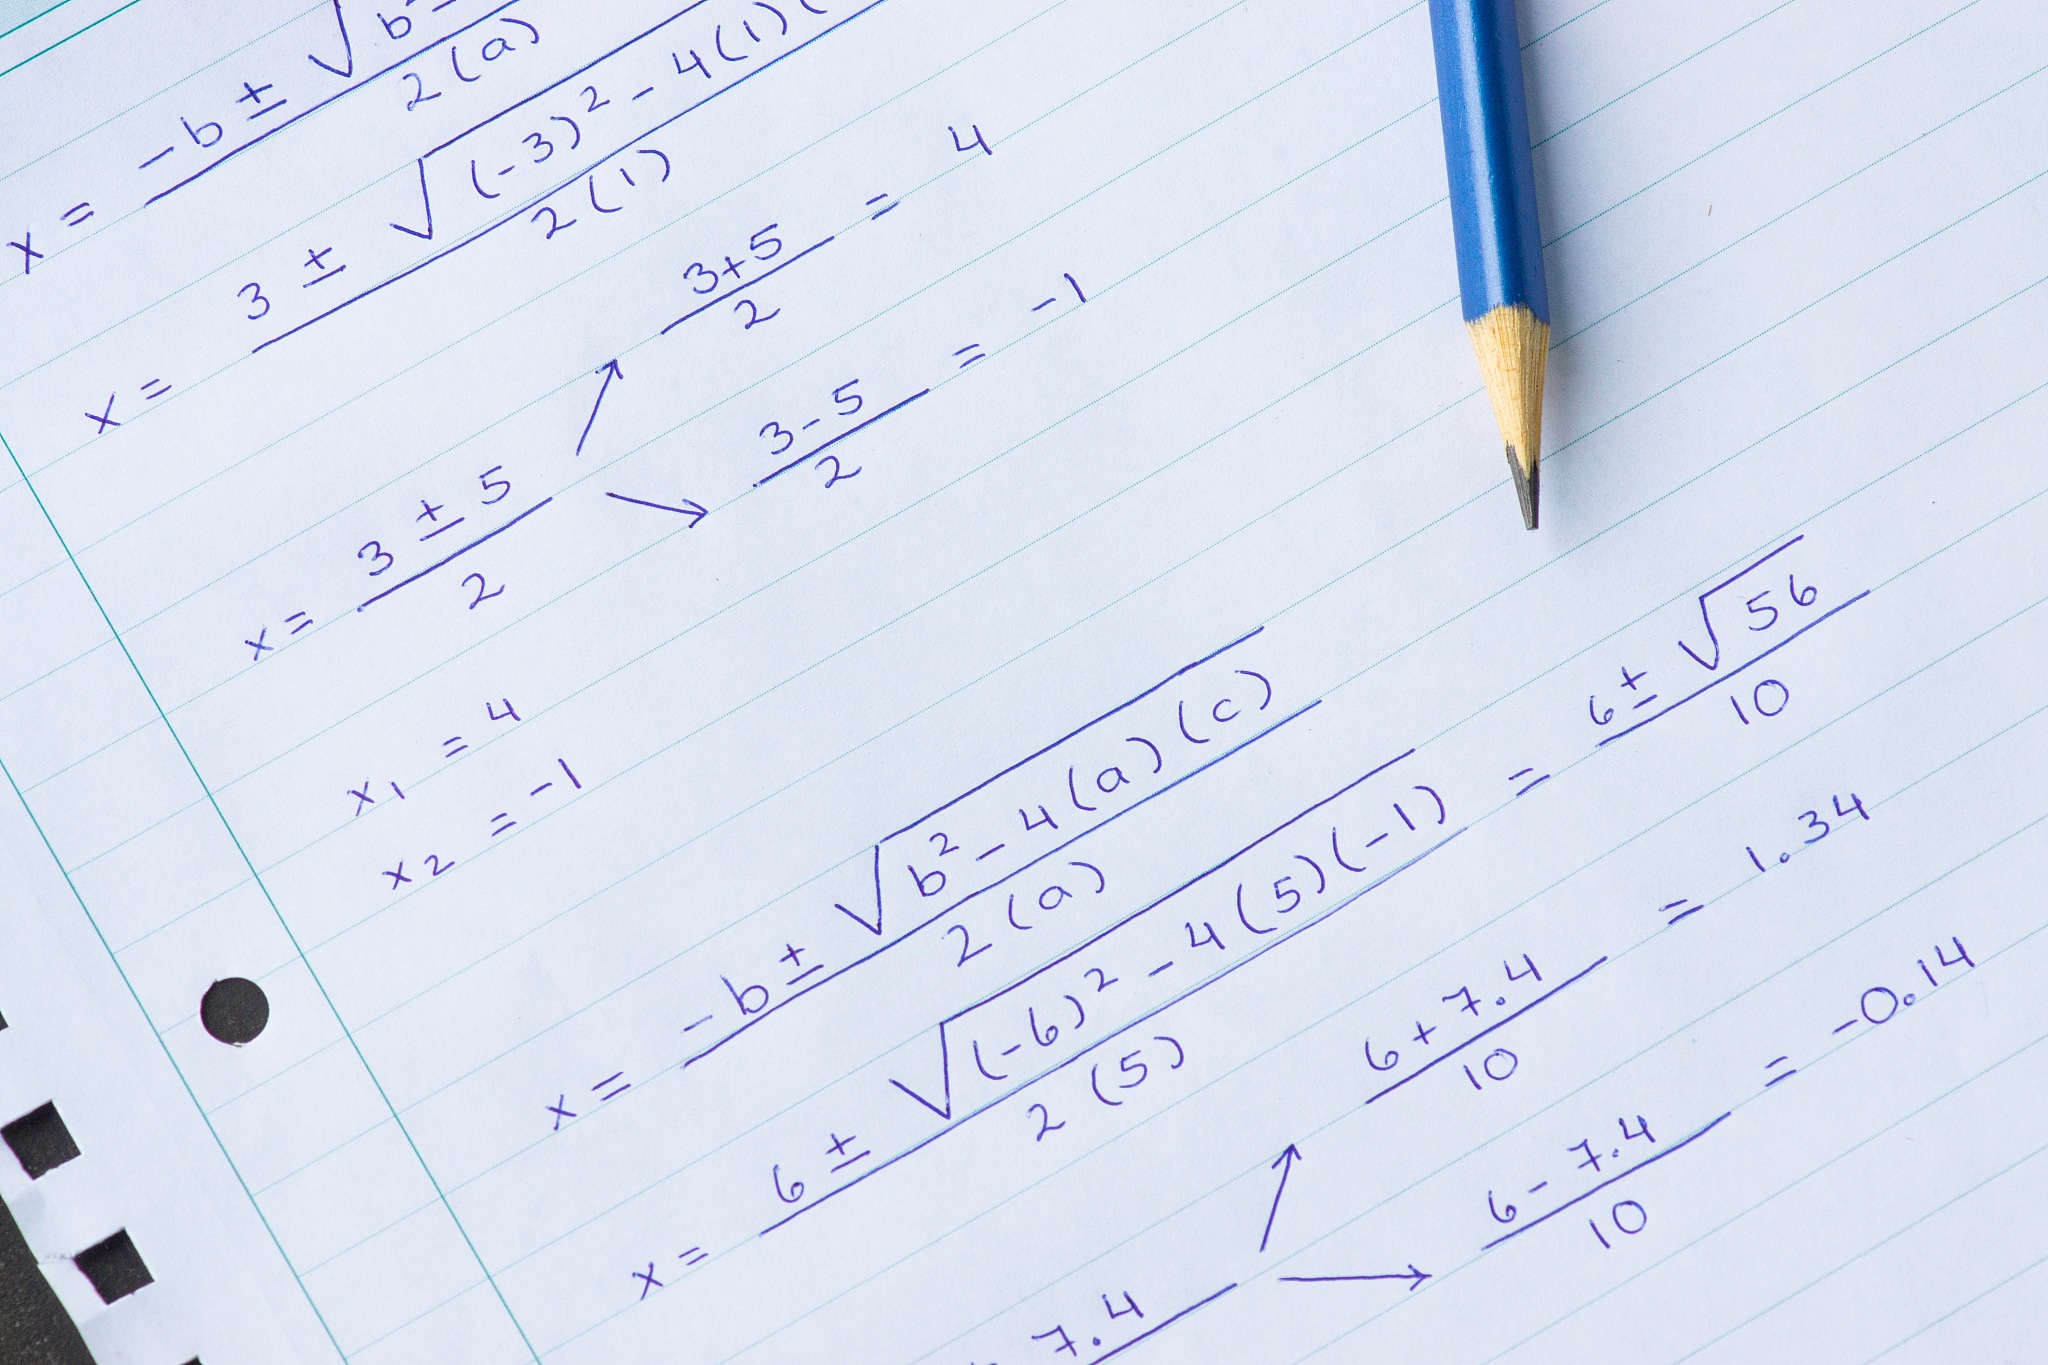 x = (-b ± √(b²
2(a)
x = (3 ± √((-3)² - 4(1)(
2(1)
x = (3 ± 5)/2
(3+5)/2 = 4
(3-5)/2 = -1
x1 = 4
x2 = -1
x = (-b ± √(b² - 4(a)(c)))/2(a)
x = (6 ± √((-6)² - 4(5)(-1)))/2(5) = (6 ± √56)/10
7.4
(6 + 7.4)/10 = 1.34
(6 - 7.4)/10 = -0.14